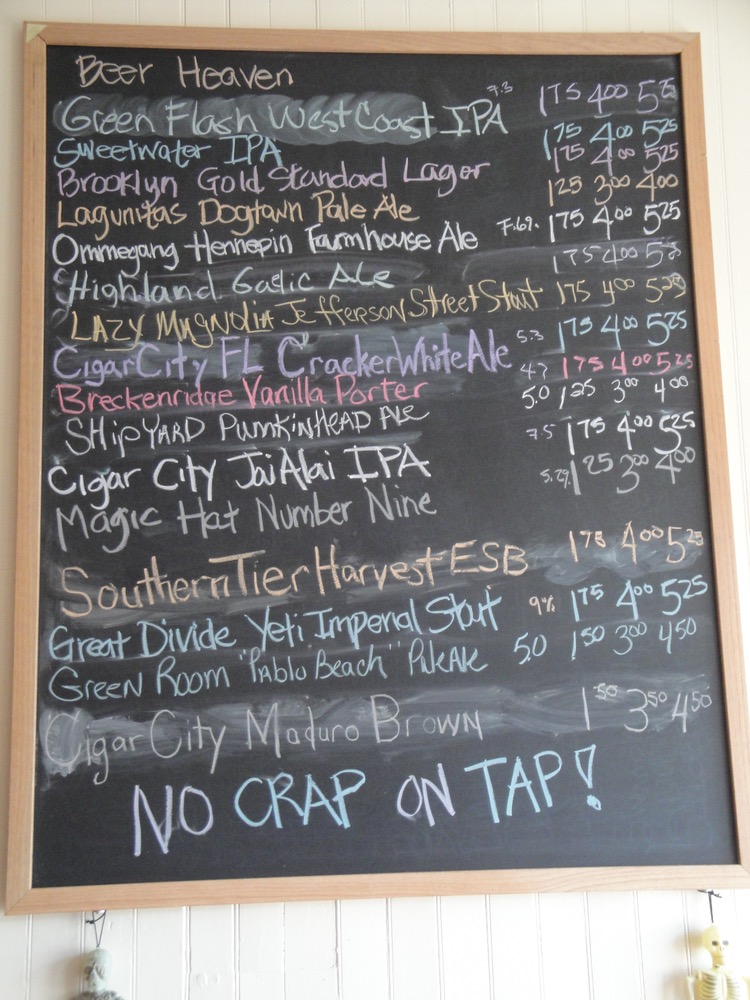 Beer Heaven
Green Flash West Coast IPA 7.3 1 75 4 00 5 25
Sweetwater IPA 1 75 4 00 5 25
Brooklyn Gold Standard Lager 1 75 4 00 5 25
Lagunitas Dogtown Pale Ale 1 25 3 00 4 00
Ommegang Hennepin Farmhouse Ale 7.69. 1 75 4 00 5 25
Highland Gaelic Ale 1 75 4 00 5 25
LAZY MAgNOliA Jefferson Street Stout 1 75 4 00 5 25
Cigar City FL Cracker White Ale 5.3 1 75 4 00 5 25
Breckenridge Vanilla Porter 4.7 1 75 4 00 5 25
SHipYARD PumkinHEAD Ale 5.0 1 25 3 00 4 00
Cigar City Jai Alai IPA 7.5 1 75 4 00 5 25
Magic Hat Number Nine 5.2% 1 25 3 00 4 00
Southern Tier Harvest ESB 1 75 4 00 5 25
Great Divide Yeti Imperial Stout 9% 1 75 4 00 5 25
Green Room "Pablo Beach" Pale Ale 5.0 1 50 3 00 4 50
Cigar City Maduro Brown 1 50 3 50 4 50
NO CRAP ON TAP!